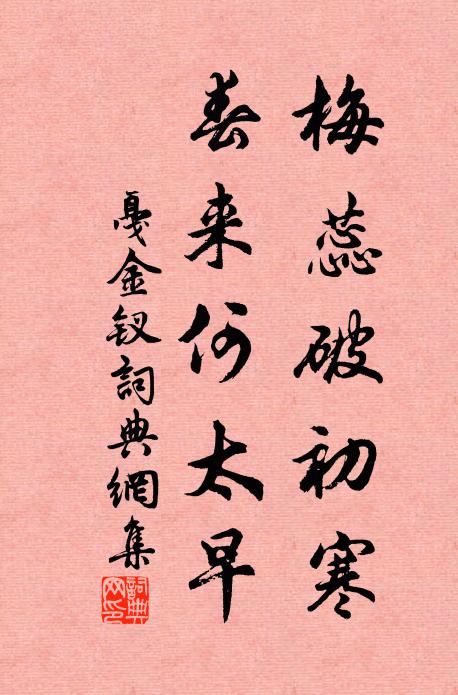 梅蕊破初寒
春来何太早
戛金釵詞典網集
詞典網印